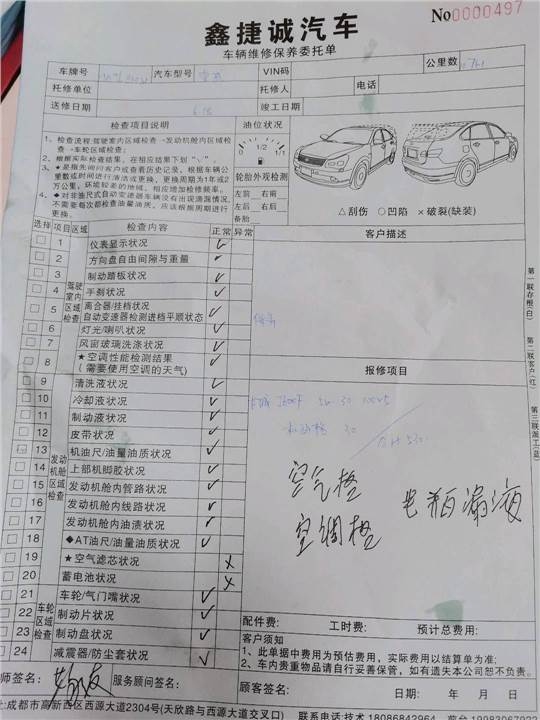 鑫捷诚汽车
No0000497
车辆维修保养委托单
车牌号 汽车型号 VIN码 公里数
托修单位 托修人 电话
送修日期 竣工日期
检查项目说明 油位状况
1、检查流程:驾驶室内区域检查→发动机舱内区域检查→车轮区域检查;
2、根据实际检查结果, 在相应结果下划"√"。
3、★是指先问门客户或查看历史记录, 根据车辆公里数或时间进行清洁或更换, 更换周期为1年或2万公里, 环境较差的地域, 相应增加检修频率。
4、◆对非油尺式自动变速器车辆没有出现滴漏情况, 不需要每次都检查油量油质, 应该根据周期进行更换。
0 1/2 1/1
轮胎外观检测
左前 右前
左后 右后
备胎
△刮伤 ○凹陷 ×破裂(缺装)
选择 项目 区域 检查内容 正常 异常 客户描述
驾驶室内区域检查
1 仪表显示状况 √
2 方向盘自由间隙与重量 √
3 制动踏板状况 √
4 手刹状况 √
5 离合器/挂档状况 自动变速器检测进档平顺状态 √
6 灯光/喇叭状况 √
7 风窗玻璃洗涤状况 √
8 ★空调性能检测结果(需要使用空调的天气) √
报修项目
发动机舱区域检查
9 清洗液状况 √
10 冷却液状况 √
11 制动液状况 √
12 皮带状况 √
13 机油尺/油量油质状况 √
14 上部机脚胶状况 √
15 发动机舱内管路状况 √
16 发动机舱内线路状况 √
17 发动机舱内油渍状况 √
18 ◆AT油尺/油量油质状况 √
19 ★空气滤芯状况 ×
20 蓄电池状况 ×
空气格 电瓶漏液
空调格
车轮区域检查
21 车轮/气门嘴状况 √
22 制动片状况 √
23 制动盘状况 √
24 减震器/防尘套状况 √
配件费: 工时费: 预计总费用:
客户须知
1、此单据中费用为预估费用, 实际费用以结算单为准;
2、车内贵重物品请自行妥善保管, 如有遗失本公司恕不负责。
师签名: 服务顾问签名: 顾客签名: 日期: 年 月 日
址:成都市高新西区西源大道2304号(天欣路与西源大道交叉口) 联系电话:技术18086842964 前台
第一联存根(白)
第二联客户(红)
第三联派工(蓝)